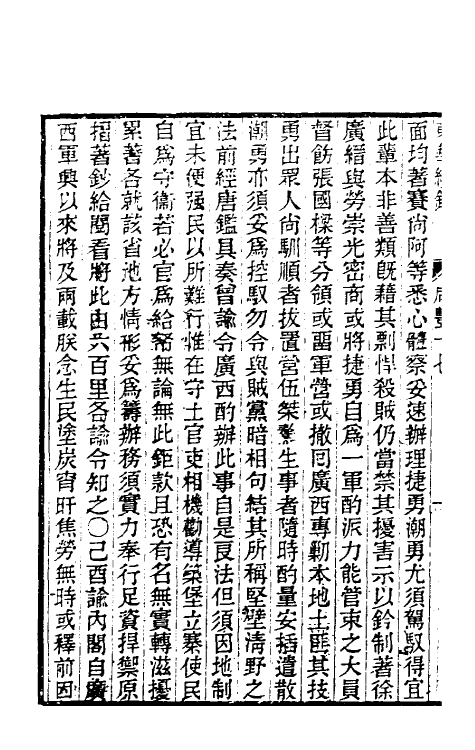 面均著賽尚阿等悉心體察妥速辦理捷勇潮勇尤須駕馭得宜
此輩本非善類旣藉其剽悍殺賊仍當禁其擾害示以鈐制著徐
廣縉與勞崇光密商或將捷勇自爲一軍酌派力能管束之大員
督飭張國樑等分領或留軍營或撤回廣西專勦本地土匪其技
勇出眾人尚馴順者拔置營伍桀驁生事者隨時酌量安插遣散
潮勇亦須妥爲控馭勿令與賊黨暗相句結其所稱堅壁清野之
法前經唐鑑具奏曾諭令廣西酌辦此事自是良法但須因地制
宜未便强民以所難行惟在守土官吏相機勸導築堡立寨使民
自爲守衞若必官爲給帑無論無此鉅款且恐有名無實轉滋擾
累著各就該省地方情形妥爲籌辦務須實力奉行足資捍禦原
摺著鈔給閱看將此由六百里各諭令知之〇己酉諭內閣自廣
西軍興以來將及兩載朕念生民塗炭宵旰焦勞無時或釋前因